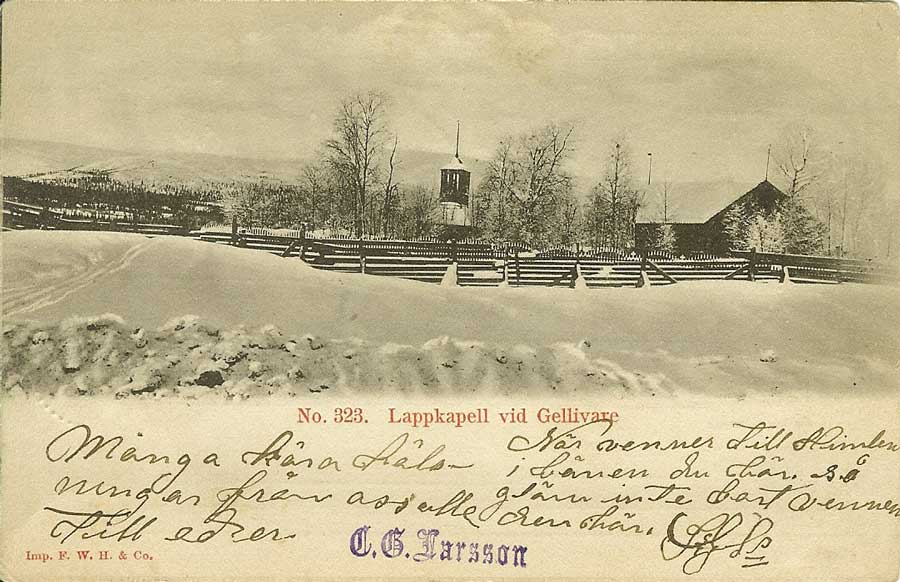 No. 323. Lappkapell vid Gellivare
Många kära Häls-
ningar från oss alle
Till eder
När venner Till Himlen
i bönen du bär. så
gløm inte bort vennen
den här.
C. G. Larsson
Imp. F. W. H. & Co.